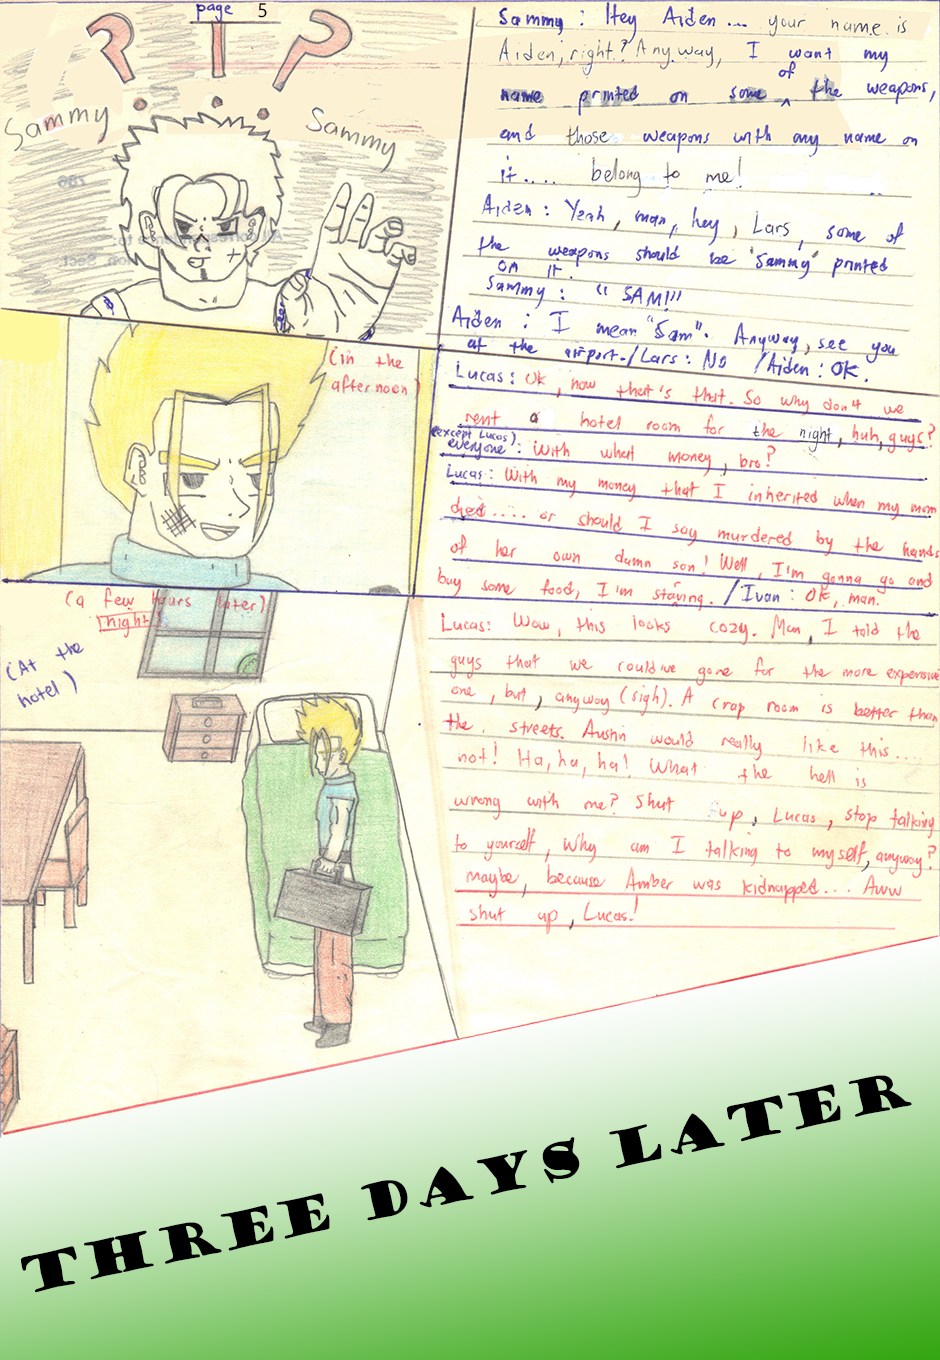 page 5
? ! ?
Sammy
Sammy
Sammy: Hey Aiden... your name is
Aiden, right? Anyway, I want my
name printed on some of the weapons,
and those weapons with my name on
it.... belong to me!
Aiden: Yeah, man, hey, Lars, some of
the weapons should be "Sammy" printed
on it.
Sammy: "SAM!"
Aiden: I mean "Sam". Anyway, see you
at the airport./Lars: No /Aiden: OK.
(in the
afternoon)
Lucas: Ok, now that's that. So why don't we
rent a hotel room for the night, huh, guys?
(except Lucas)
everyone: With what money, bro?
Lucas: With my money that I inherited when my mom
died.... or should I say murdered by the hands
of her own damn son! Well, I'm gonna go and
buy some food, I'm staving. /Ivan: OK, man.
(a few hours later)
(night)
(At the
hotel)
Lucas: Wow, this looks cozy. Man, I told the
guys that we could've gone for the more expensive
one, but, anyway (sigh). A crap room is better than
the streets. Austin would really like this....
not! Ha, ha, ha! What the hell is
wrong with me? Shut up, Lucas, stop talking
to yourself, Why am I talking to myself, anyway?
maybe, because Amber was kidnapped... Aww
shut up, Lucas!
THREE DAYS LATER